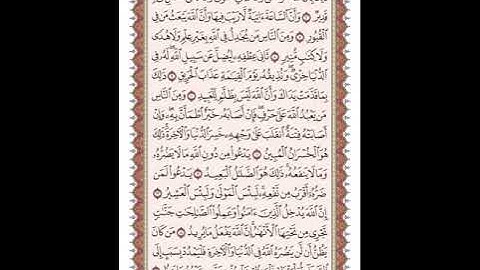 قَدِيرٌ ۝ وَأَنَّ ٱلسَّاعَةَ ءَاتِيَةٌ لَّا رَيْبَ فِيهَا وَأَنَّ ٱللَّهَ يَبْعَثُ مَن فِي
ٱلْقُبُورِ ۝ وَمِنَ ٱلنَّاسِ مَن يُجَٰدِلُ فِي ٱللَّهِ بِغَيْرِ عِلْمٍ وَلَا هُدًى
وَلَا كِتَٰبٍ مُّنِيرٍ ۝ ثَانِيَ عِطْفِهِۦ لِيُضِلَّ عَن سَبِيلِ ٱللَّهِ لَهُۥ فِي
ٱلدُّنْيَا خِزْيٌ وَنُذِيقُهُۥ يَوْمَ ٱلْقِيَٰمَةِ عَذَابَ ٱلْحَرِيقِ ۝ ذَٰلِكَ
بِمَا قَدَّمَتْ يَدَاكَ وَأَنَّ ٱللَّهَ لَيْسَ بِظَلَّٰمٍ لِّلْعَبِيدِ ۝ وَمِنَ ٱلنَّاسِ
مَن يَعْبُدُ ٱللَّهَ عَلَىٰ حَرْفٍ فَإِنْ أَصَابَهُۥ خَيْرٌ ٱطْمَأَنَّ بِهِۦ وَإِنْ
أَصَابَتْهُ فِتْنَةٌ ٱنقَلَبَ عَلَىٰ وَجْهِهِۦ خَسِرَ ٱلدُّنْيَا وَٱلْءَاخِرَةَ ذَٰلِكَ
هُوَ ٱلْخُسْرَانُ ٱلْمُبِينُ ۝ يَدْعُوا۟ مِن دُونِ ٱللَّهِ مَا لَا يَضُرُّهُۥ
وَمَا لَا يَنفَعُهُۥ ذَٰلِكَ هُوَ ٱلضَّلَٰلُ ٱلْبَعِيدُ ۝ يَدْعُوا۟ لَمَن
ضَرُّهُۥٓ أَقْرَبُ مِن نَّفْعِهِۦ لَبِئْسَ ٱلْمَوْلَىٰ وَلَبِئْسَ ٱلْعَشِيرُ ۝
إِنَّ ٱللَّهَ يُدْخِلُ ٱلَّذِينَ ءَامَنُوا۟ وَعَمِلُوا۟ ٱلصَّٰلِحَٰتِ جَنَّٰتٍ
تَجْرِي مِن تَحْتِهَا ٱلْأَنْهَٰرُ إِنَّ ٱللَّهَ يَفْعَلُ مَا يُرِيدُ ۝ مَن كَانَ
يَظُنُّ أَن لَّن يَنصُرَهُ ٱللَّهُ فِي ٱلدُّنْيَا وَٱلْءَاخِرَةِ فَلْيَمْدُدْ بِسَبَبٍ إِلَى